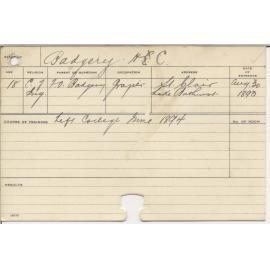 Badgery H E C.
AGE RELIGION PARENT OR GUARDIAN OCCUPATION ADDRESS DATE OF ENTRANCE
15 C of F. O. Badgery Grazier St Clair Aug 30
Eng. Lake Bathurst 1893
COURSE OF TRAINING Left College June 1894 NO. OF ROOM
RESULTS